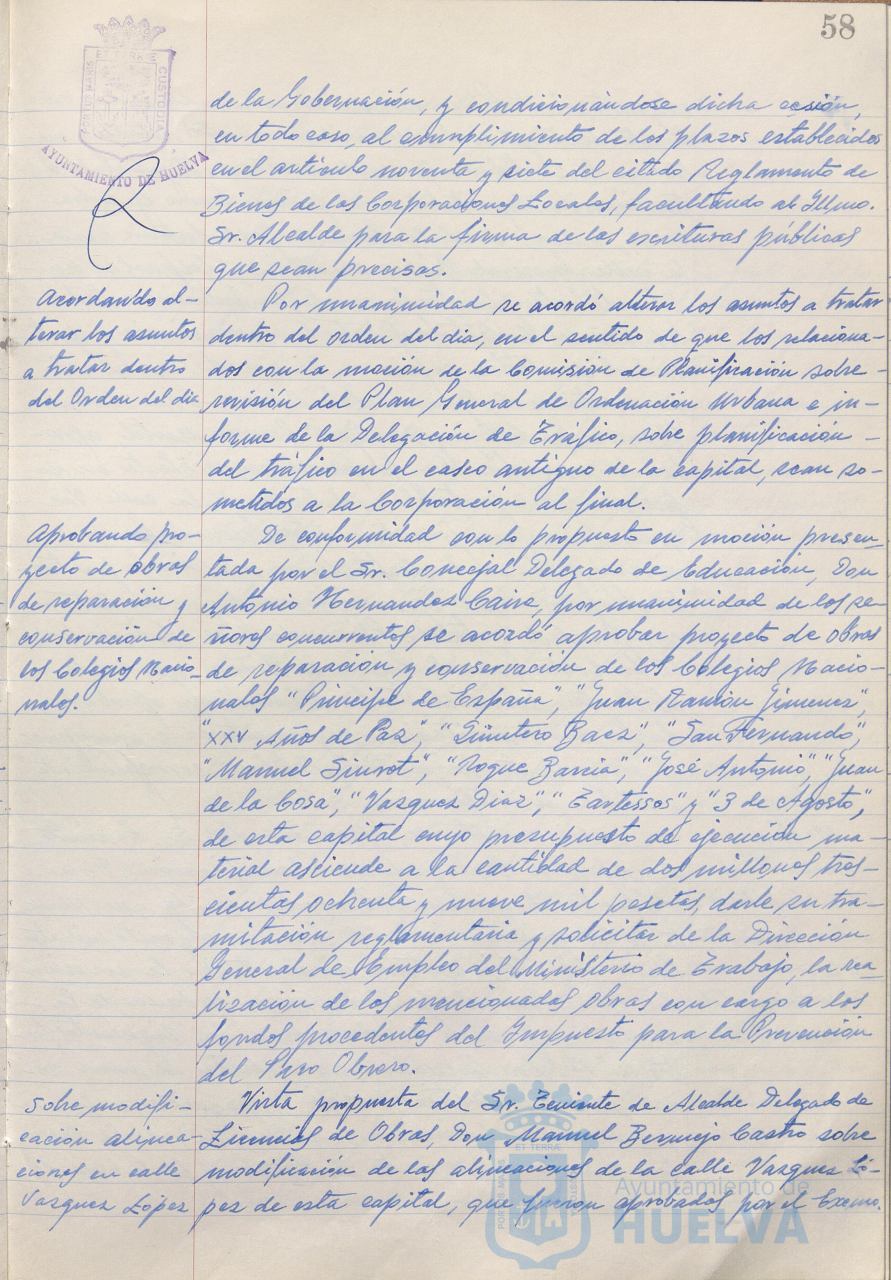 58
PORTUS MARIS ET TERRAE CUSTODIA
AYUNTAMIENTO DE HUELVA
de la Gobernación, y condicionándose dicha cesión,
en todo caso, al cumplimiento de los plazos establecidos
en el artículo noventa y siete del citado Reglamento de
Bienes de las Corporaciones Locales, facultando al Illmo.
Sr. Alcalde para la firma de las escrituras públicas
que sean precisas.
Acordando al-
terar los asuntos
a tratar dentro
del Orden del dia
Por unanimidad se acordó alterar los asuntos a tratar
dentro del orden del dia, en el sentido de que los relaciona-
dos con la moción de la Comisión de Planificación sobre-
revisión del Plan General de Ordenación Urbana e in-
forme de la Delegación de Tráfico, sobre planificación -
del tráfico en el casco antiguo de la capital, sean so-
metidos a la Corporación al final.
Aprobando pro-
yecto de obras
de reparación y
conservación de
los Colegios Nacio-
nales.
De conformidad con lo propuesto en moción presen-
tada por el Sr. Concejal Delegado de Educación, Don
Antonio Hernandez Caire, por unanimidad de los se-
ñores concurrentes se acordó aprobar proyecto de obras
de reparación y conservación de los Colegios Nacio-
nales "Principe de España", "Juan Ramón Jimenez",
"XXV Años de Paz", "Quintero Baez", "San Fernando",
"Manuel Siurot", "Roque Barcia", "José Antonio", "Juan
de la Cosa", "Vazquez Diaz", "Tartessos" y "3 de Agosto",
de esta capital cuyo presupuesto de ejecución ma-
terial asciende a la cantidad de dos millones tres-
cientas ochenta y nueve mil pesetas, darle su tra-
mitación reglamentaria y solicitar de la Dirección
General de Empleo del Ministerio de Trabajo, la rea-
lización de las mencionadas obras con cargo a los
fondos procedentes del Impuesto para la Prevención
del Paro Obrero.
Sobre modifi-
cación alinea-
ciones en calle
Vazquez López
Vista propuesta del Sr. Teniente de Alcalde Delegado de
Licencias de Obras, Don Manuel Bermejo Castro sobre
modificación de las alineaciones de la calle Vazquez Ló-
pez de esta capital, que fueron aprobadas por el Excmo.
Ayuntamiento de
HUELVA